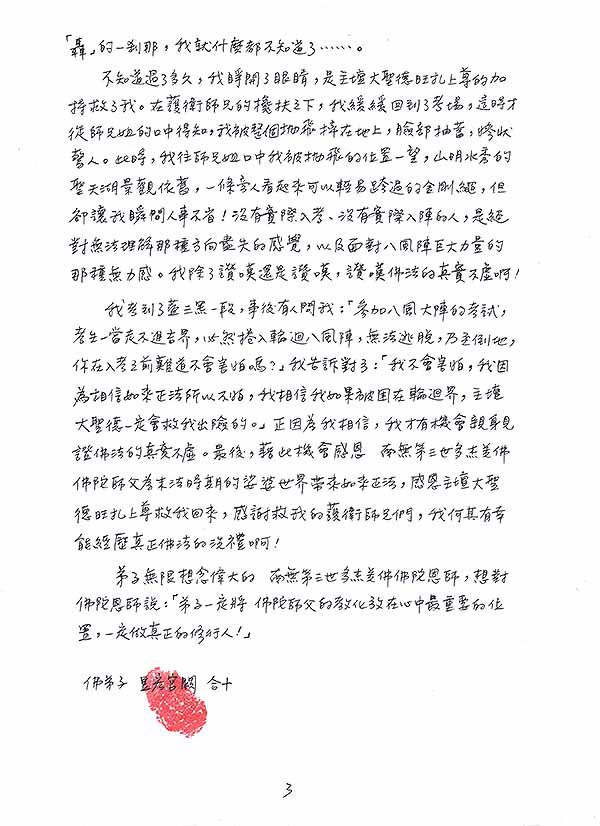 「轟」的一剎那，我就什麼都不知道了……。
不知道過了多久，我睜開了眼睛，是主壇大聖德旺扎上尊的加
持救了我。在護衛師兄的攙扶之下，我緩緩回到了考場，這時才
從師兄姐的口中得知，我被整個拋飛摔在地上，臉部抽蓄，慘狀
驚人。此時，我往師兄姐口中我被拋飛的位置一望，山明水秀的
聖天湖景觀依舊，一條旁人看起來可以輕易跨過的金剛繩，但
卻讓我瞬間人事不省！沒有實際入考、沒有實際入陣的人，是絕
對無法理解那種方向盡失的感覺，以及面對八風陣巨大力量的
那種無力感。我除了讚嘆還是讚嘆，讚嘆佛法的真實不虛啊！
我考到了藍三黑一段，事後有人問我：「參加八風大陣的考試，
考生一當走不進吉界，必然捲入輪迴八風陣，無法逃脫，乃至倒地，
你在入考之前難道不會害怕嗎？」我告訴對方：「我不會害怕，我因
為相信如來正法所以不怕，我相信我如果被困在輪迴界，主壇
大聖德一定會救我出險的。」正因為我相信，我才有機會親身見
證佛法的真實不虛。最後，藉此機會感恩 南無第三世多杰羌佛
佛陀師父為末法時期的娑婆世界帶來如來正法，感恩主壇大聖
德旺扎上尊救我回來，感謝救我的護衛師兄們，我何其有幸
能經歷真正佛法的洗禮啊！
弟子無限想念偉大的 南無第三世多杰羌佛佛陀恩師，想對
佛陀恩師說：「弟子一定將 佛陀師父的教化放在心中最重要的位
置，一定做真正的修行人！」
佛弟子 合十
3